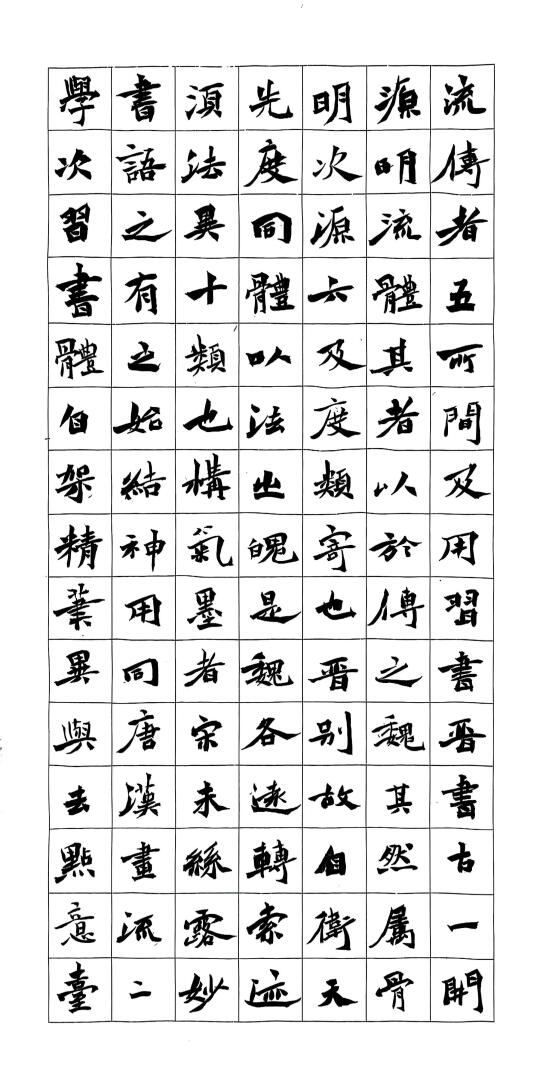 學書須先明源流
次語法度次明傳
習之異同源流者
書有十體六體五
體之類以及其所
自始也法度者間
架結構出類以及
精神氣魄寄於用
筆用墨是也傳習
異同者魏晋之書
與唐宋各别魏晋
去漢未遠故其書
點畫絲轉自然古
意流露索衛属一
臺二妙迹天骨開